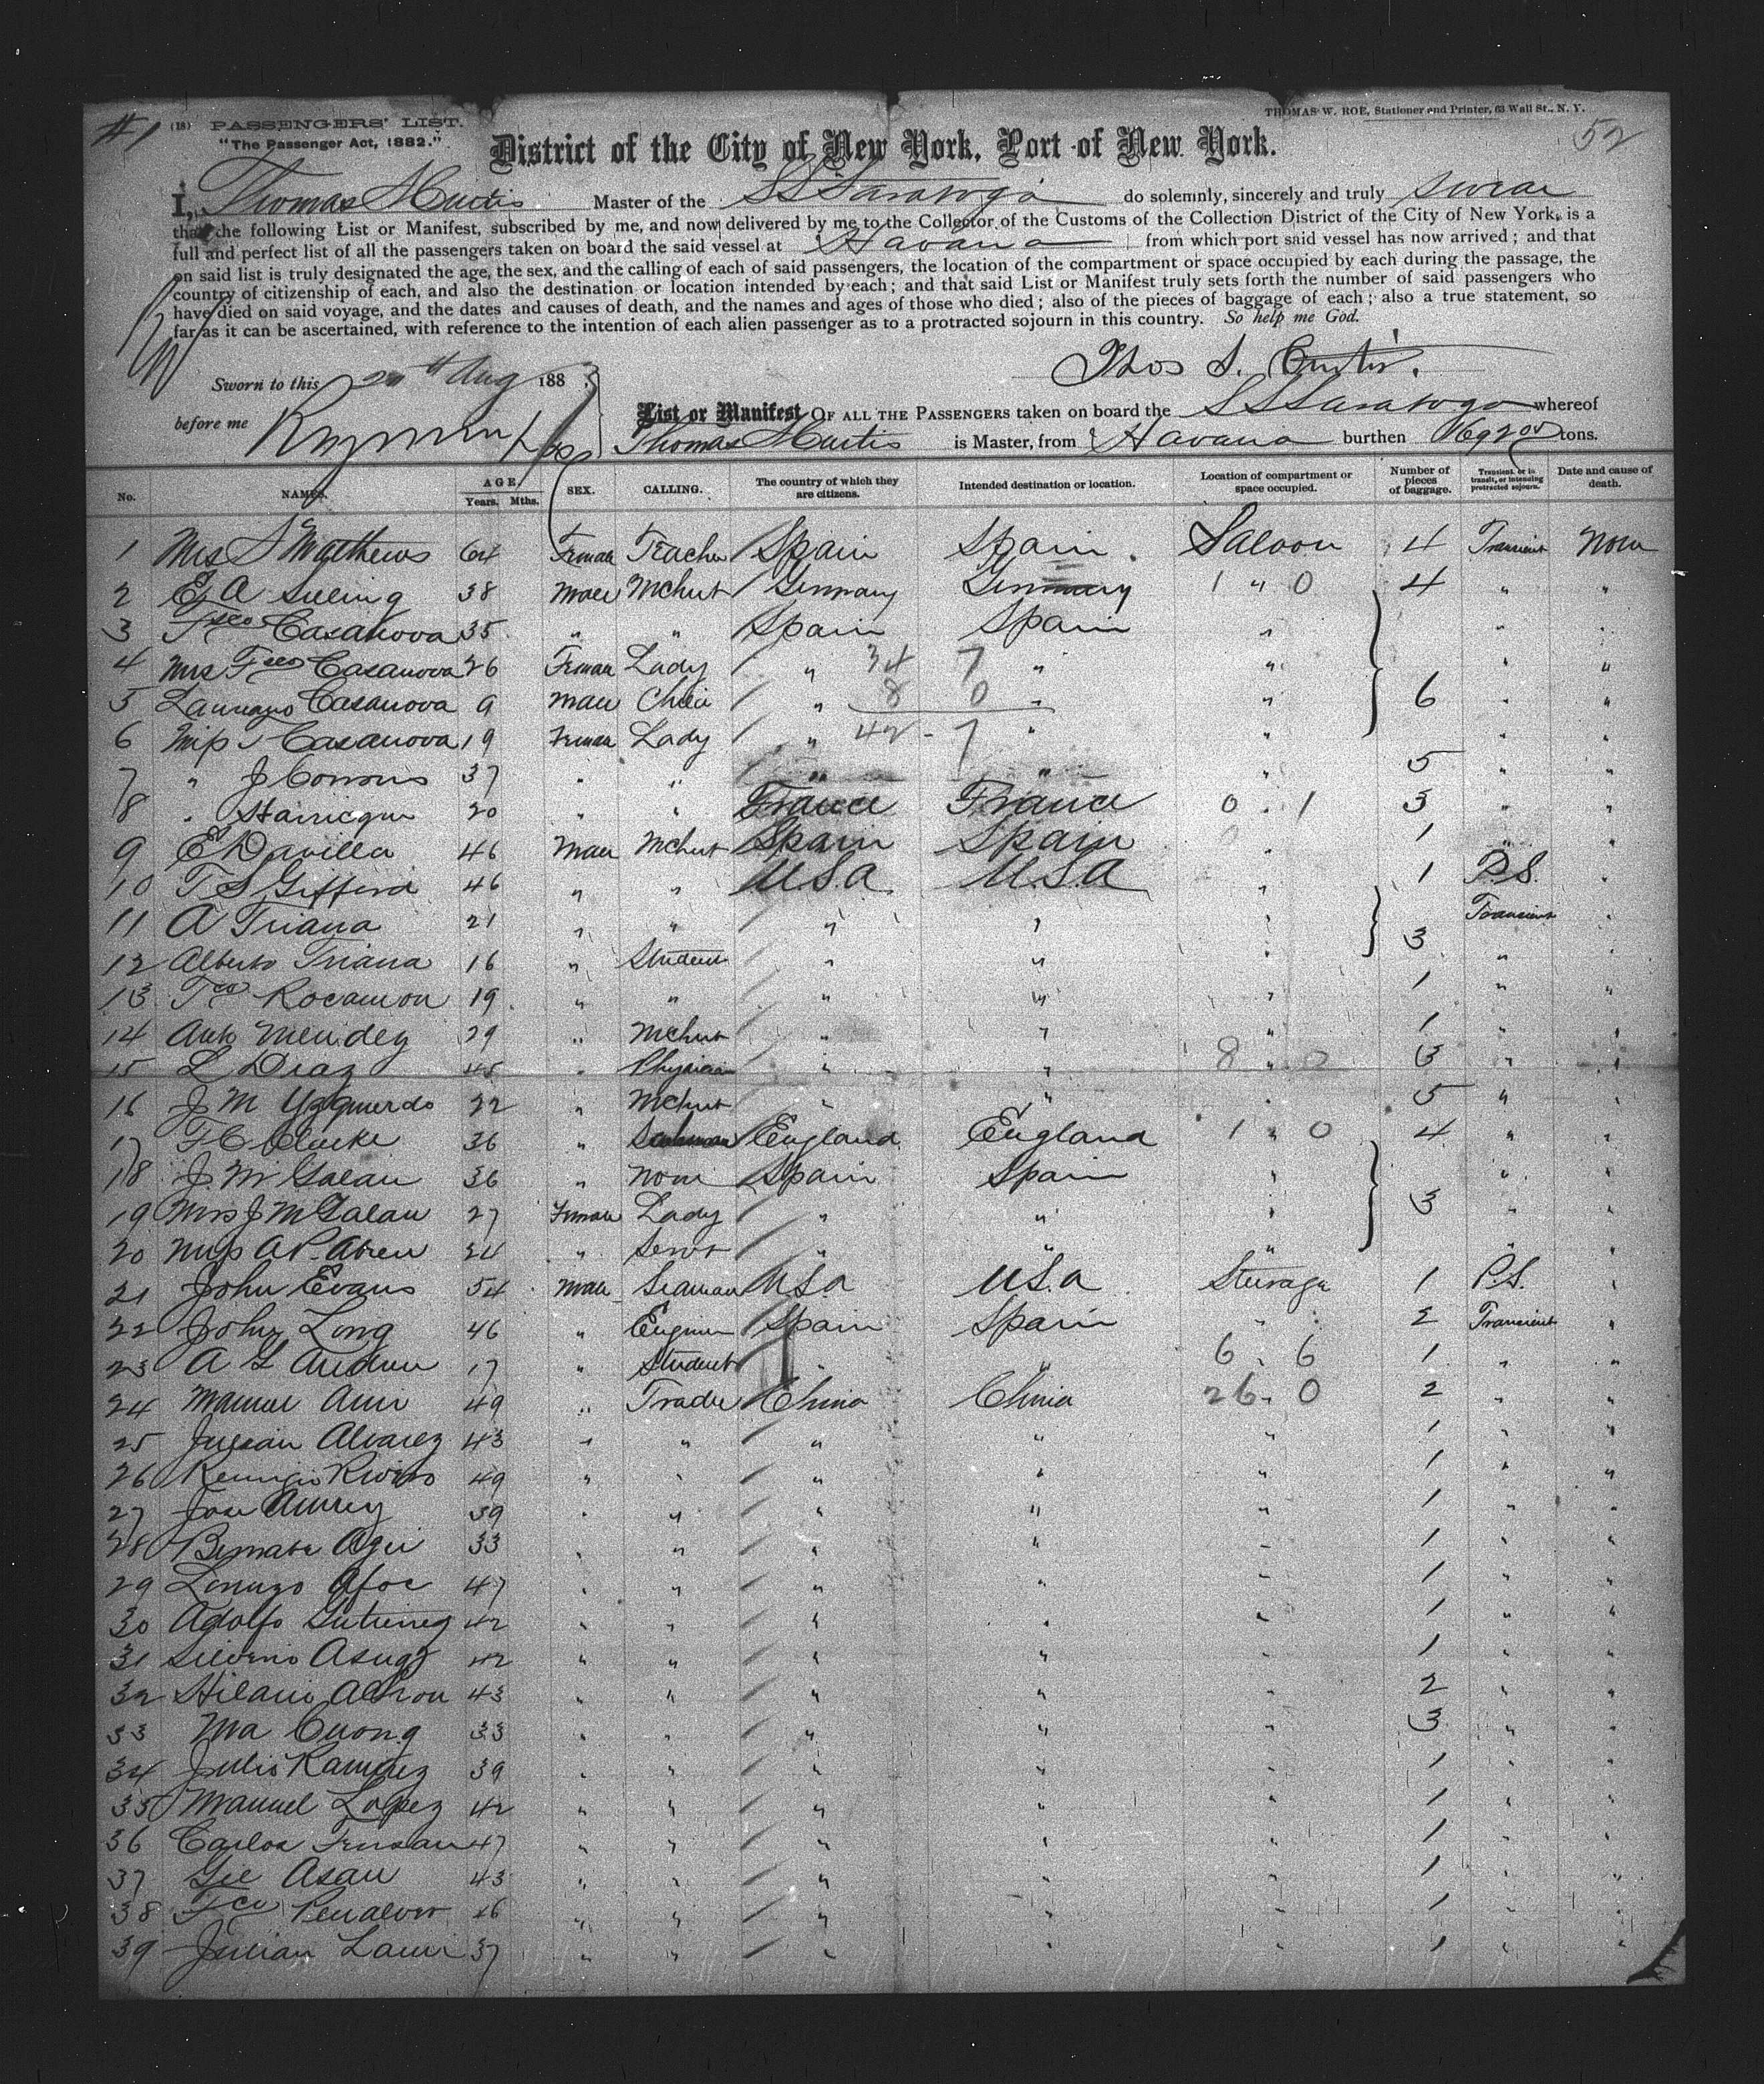 #1
(18) PASSENGERS' LIST.
"The Passenger Act, 1882."
THOMAS W. ROE, Stationer and Printer, 63 Wall St., N. Y.
52
District of the City of New York, Port of New York.
I, Thomas S Curtis Master of the SS Saratoga do solemnly, sincerely and truly swear
that the following List or Manifest, subscribed by me, and now delivered by me to the Collector of the Customs of the Collection District of the City of New York, is a
full and perfect list of all the passengers taken on board the said vessel at Havana from which port said vessel has now arrived; and that
on said list is truly designated the age, the sex, and the calling of each of said passengers, the location of the compartment or space occupied by each during the passage, the
country of citizenship of each, and also the destination or location intended by each; and that said List or Manifest truly sets forth the number of said passengers who
have died on said voyage, and the dates and causes of death, and the names and ages of those who died; also of the pieces of baggage of each; also a true statement, so
far as it can be ascertained, with reference to the intention of each alien passenger as to a protracted sojourn in this country. So help me God.
Thos S. Curtis.
Sworn to this Aug 188
before me
List or Manifest OF ALL THE PASSENGERS taken on board the SS Saratoga whereof
Thomas S Curtis is Master, from Havana burthen 1692 tons.
No. NAMES. AGE. Years. Mths. SEX. CALLING. The country of which they are citizens. Intended destination or location. Location of compartment or space occupied. Number of pieces of baggage. Transient, or in transit, or intending protracted sojourn. Date and cause of death.
1 Mrs S Mathews 64 Female Teacher Spain Spain Saloon 4 Transient None
2 E A 38 Male Mchnt Germany Germany 1 " 0 4 " "
3 Fco Casanova 35 " " Spain Spain " " "
4 Mrs Fco Casanova 26 Female Lady " 34 7 " " " "
5 Casanova 9 Male Child " 8 0 " " 6 " "
6 Miss Casanova 19 Female Lady " 42 - 7 " " " "
7 " J 37 " " " " " 5 " "
8 " 20 " " France France 0 " 1 3 " "
9 E Davilla 46 Male Mchnt Spain Spain " 1 " "
10 T S Gifford 46 " " U.S.A U.S.A " 1 P.S. "
11 A Triana 21 " " " " " Transient "
12 Alberto Triana 16 " Student " " " 3 "
13 Fco 19 " " " " " 1 " "
14 29 " Mchnt " " " 1 " "
15 L Diaz 45 " Physician " " 8 " 0 3 " "
16 J M Yzquierdo 22 " Mchnt " " " 5 " "
17 F C Clarke 36 " England England 1 " 0 4 " "
18 J. M Galan 36 " None Spain Spain " " "
19 Mrs J M Galan 27 Female Lady " " " 3 " "
20 Miss A P Abreu 24 " Servt " " " " "
21 John Evans 54 Male Seaman U.S.A U.S.A Steerage 1 P.S. "
22 John Long 46 " Engineer Spain Spain " 2 Transient "
23 A 17 " Student " " 6 " 6 1 " "
24 Manuel 49 " Trader China China 26 " 0 2 " "
25 Julian Alvarez 43 " " " " " 1 " "
26 Remigio 49 " " " " " 1 " "
27 Jose 39 " " " " " 1 " "
28 33 " " " " " 1 " "
29 Lorenzo Afoc 47 " " " " " 1 " "
30 Adolfo Gutierrez 42 " " " " " 1 " "
31 42 " " " " " 1 " "
32 Hilario 43 " " " " " 2 " "
33 Ma Cuong 33 " " " " " 3 " "
34 Julio Ramirez 39 " " " " " 1 " "
35 Manuel Lopez 42 " " " " " 1 " "
36 Carlos 47 " " " " " 1 " "
37 Gee Asau 43 " " " " " 1 " "
38 Fco " " " " " 1 " "
39 Julian 37 " " " " " 1 " "